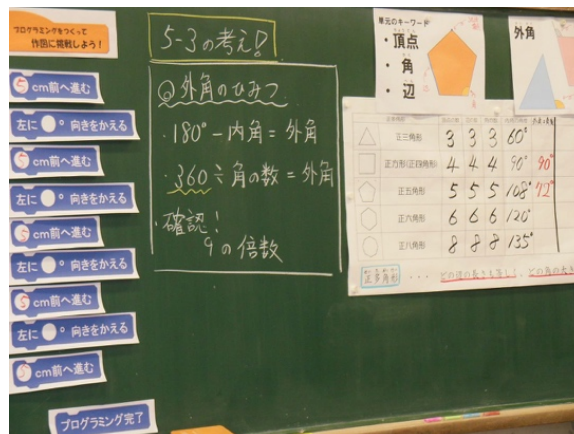 プログラミングをつくって
作図に挑戦しよう!
5cm前へ進む
左に ° 向きをかえる
5cm前へ進む
左に ° 向きをかえる
5cm前へ進む
左に ° 向きをかえる
5cm前へ進む
左に ° 向きをかえる
5cm前へ進む
プログラミング完了
5-3の考え!
◎外角のひみつ
・180°-内角=外角
・360÷角の数=外角
確認!
9の倍数
単元のキーワード
・頂点
・角
・辺
外角
正三角形 3 3 3 60°
正方形(正四角形) 4 4 4 90° 90°
正五角形 5 5 5 108° 72°
正六角形 6 6 6 120°
正八角形 8 8 8 135°
正多角形 ・・・ どの辺の長さも等しく、どの角の大き